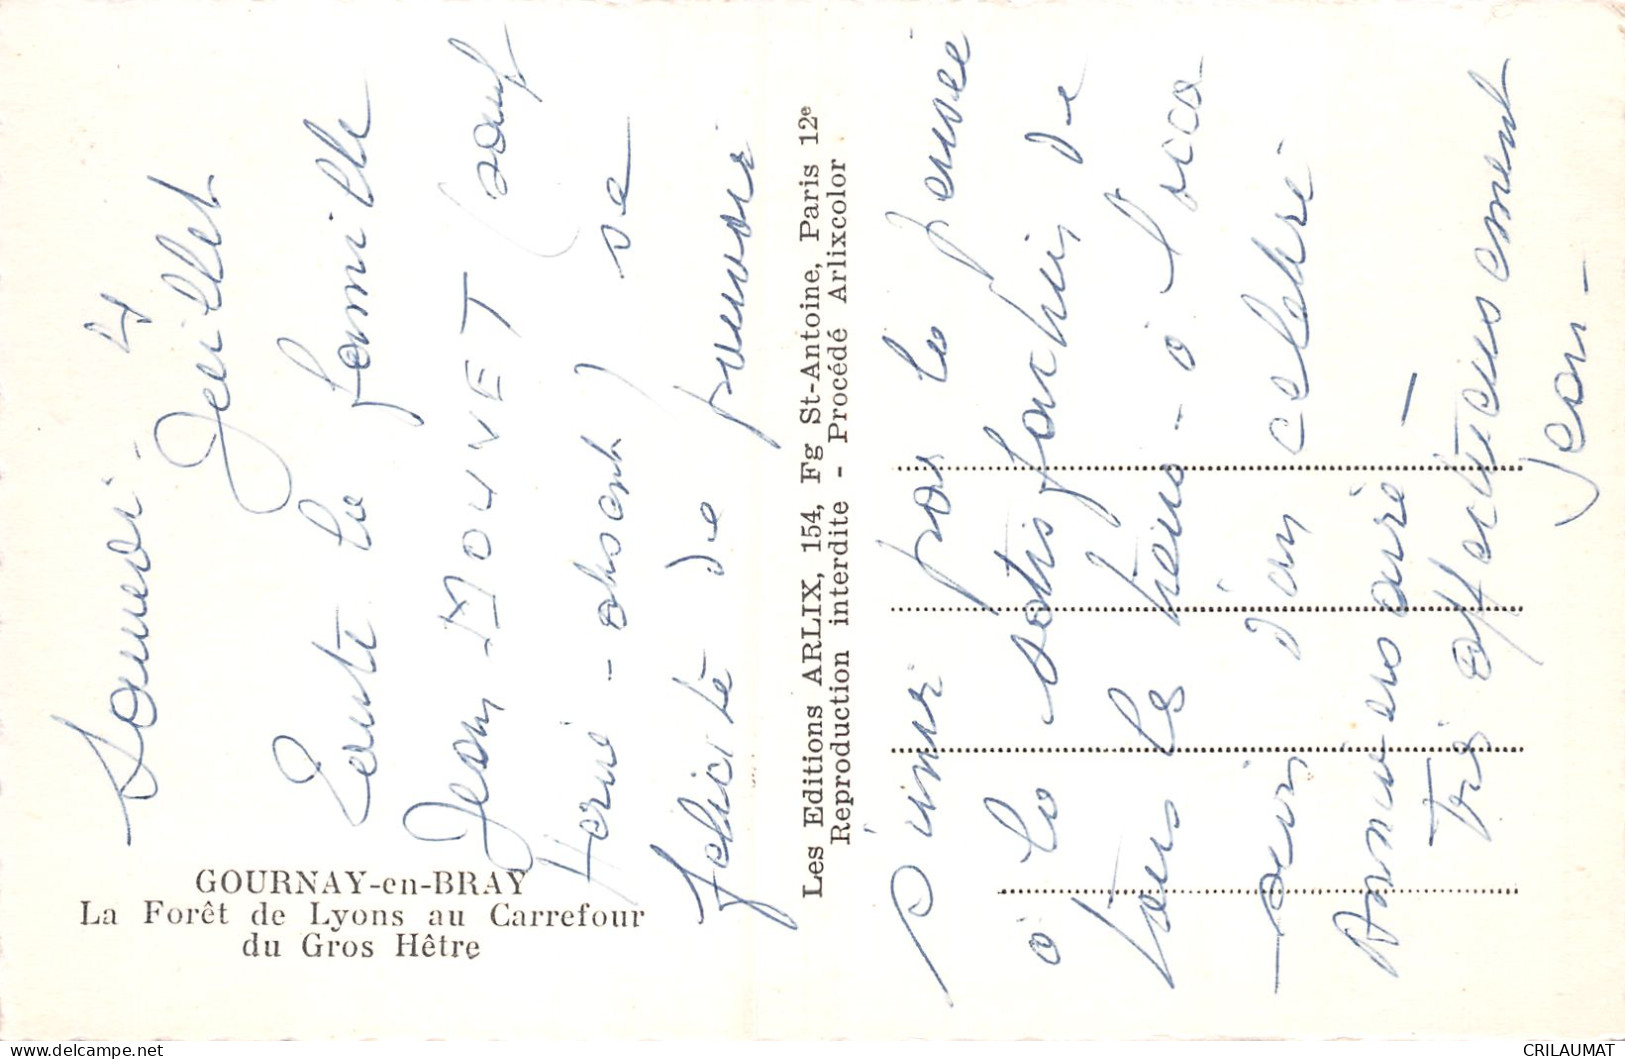 GOURNAY-en-BRAY
La Forêt de Lyons au Carrefour
du Gros Hêtre
Les Editions ARLIX, 154, Fg St-Antoine, Paris 12e
Reproduction interdite - Procédé Arlixcolor
Samedi - 4
Juillet
Toute la famille
Jean MOUVET (sauf
Hervé - absent) se
félicite de pouvoir
s'unir par la pensée
à la satisfaction de
tous les tiens - à l'occa
sion d'un célèbre
Anniversaire -
Très affectueusement
Jean -
CRILAUMAT